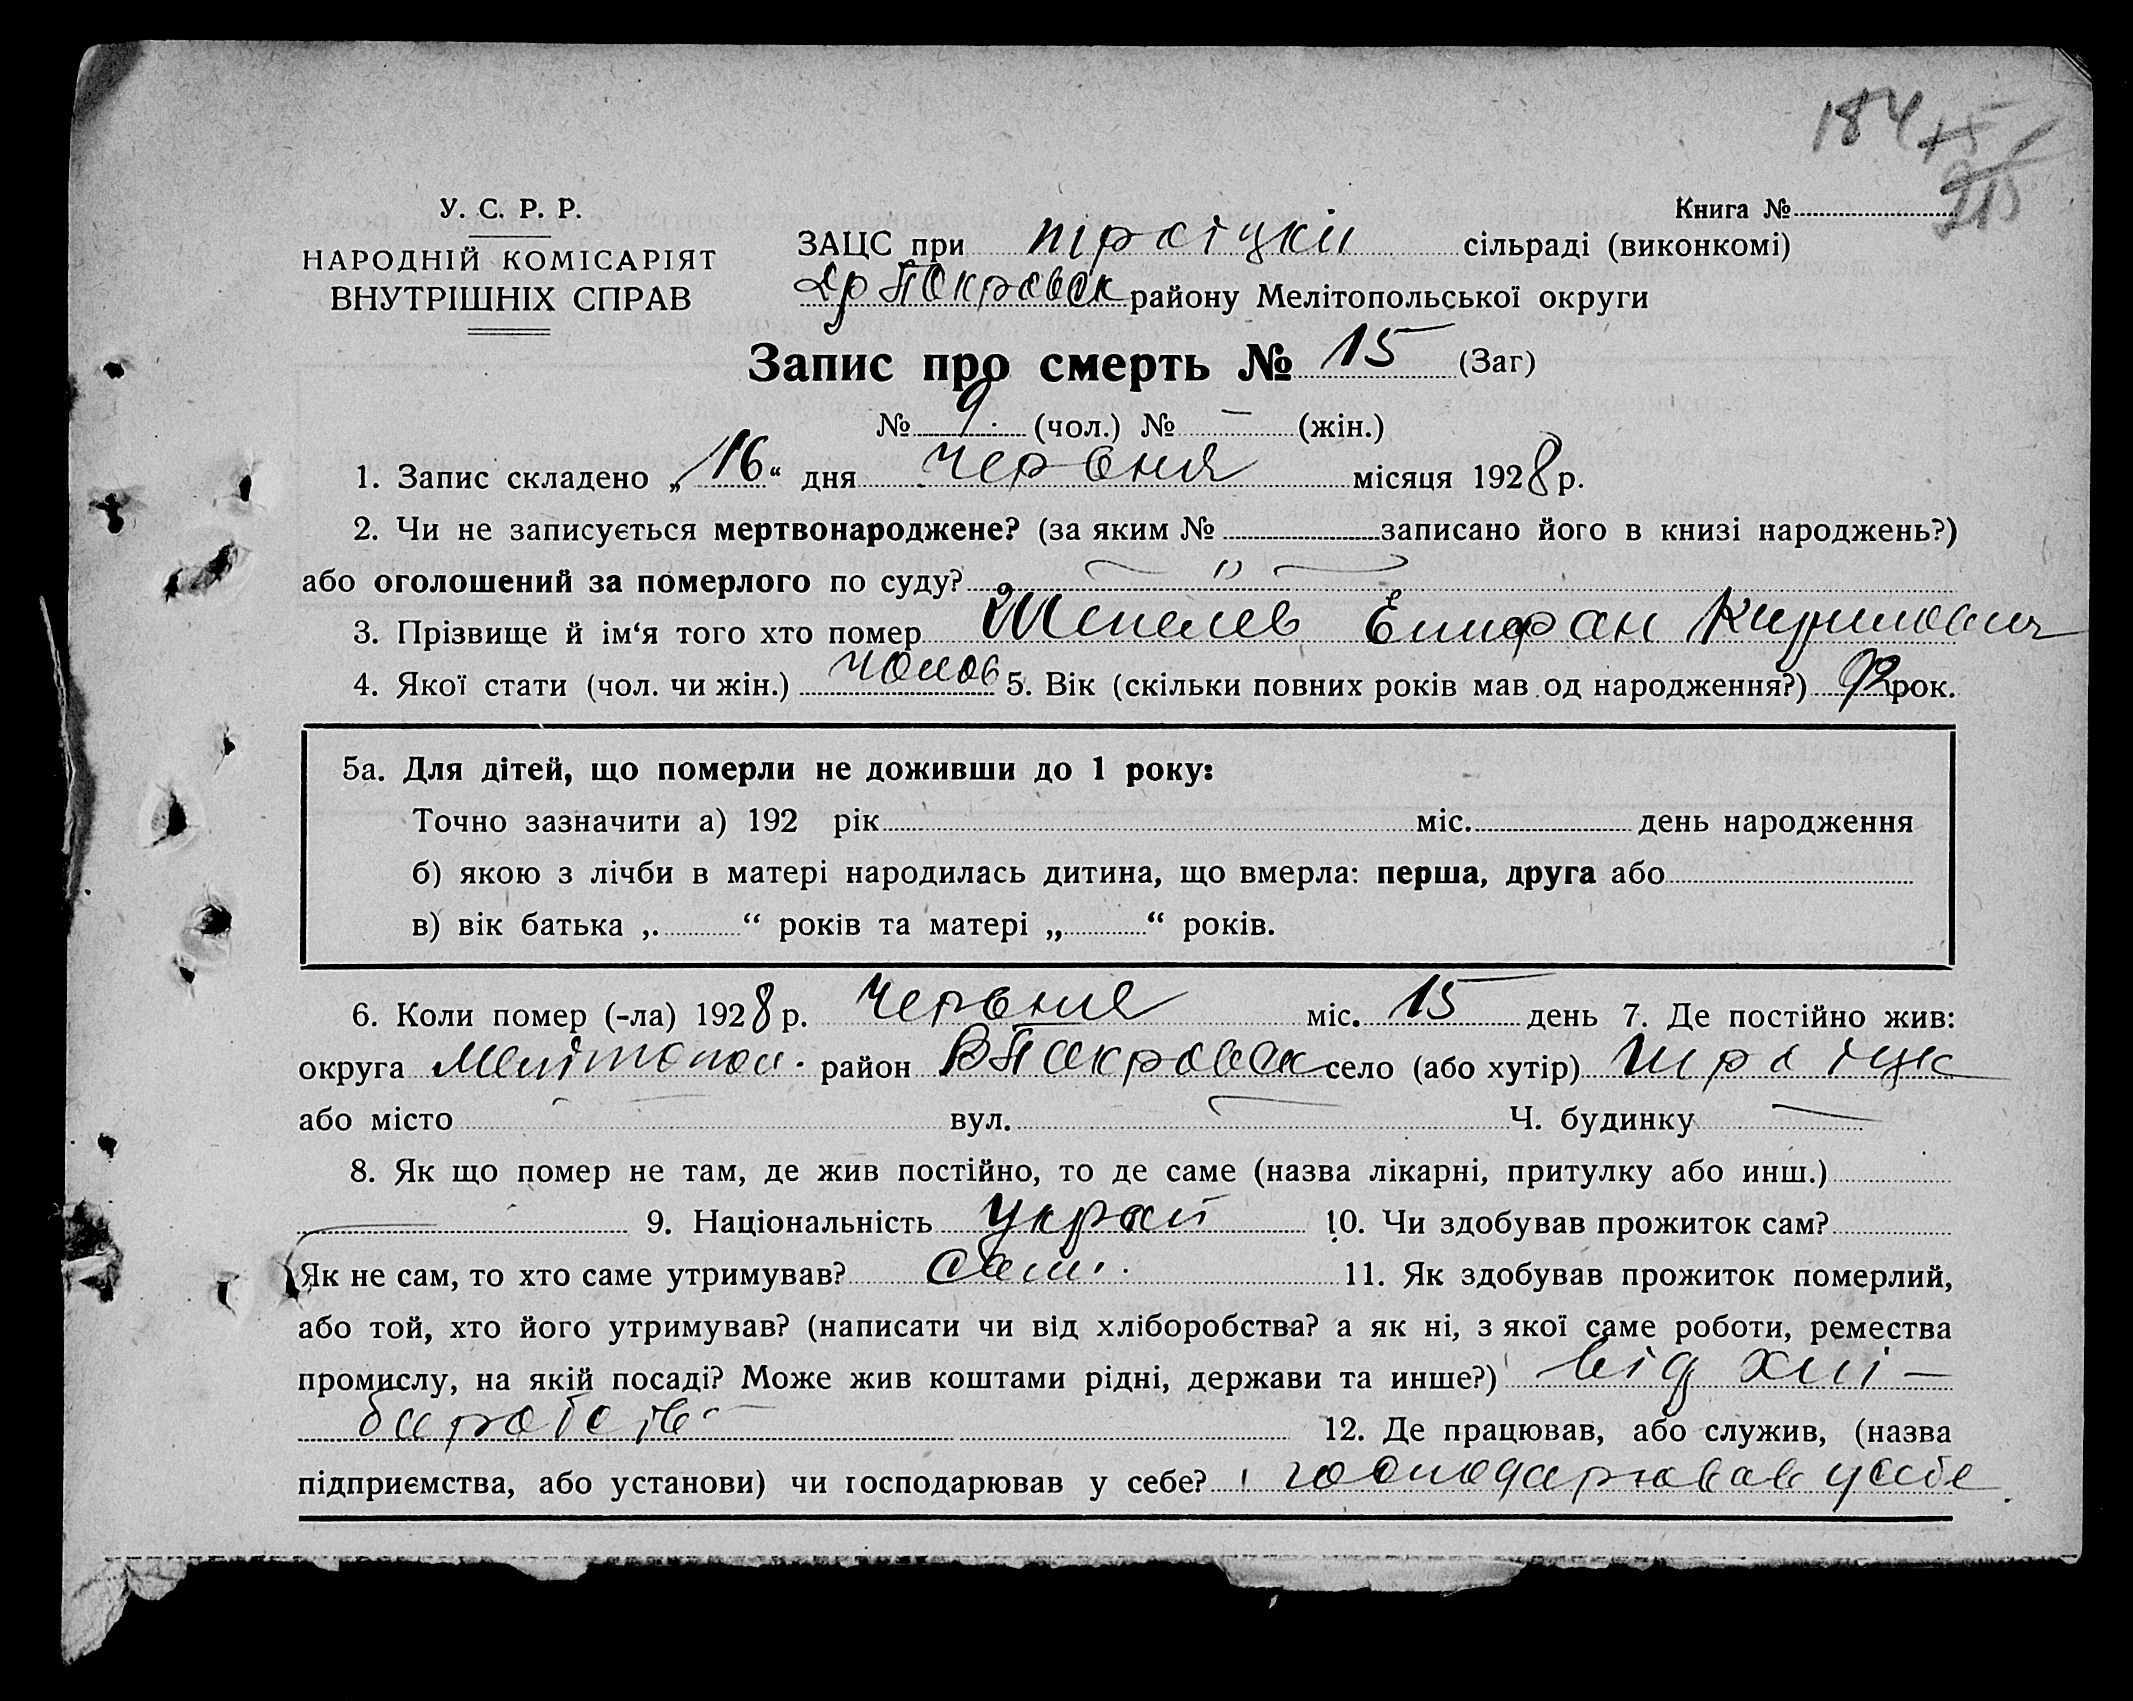 184
215
У. С. Р. Р.
Книга №
НАРОДНІЙ КОМІСАРІЯТ
ВНУТРІШНІХ СПРАВ
ЗАЦС при Троїцкій сільраді (виконкомі)
Покровск району Мелітопольської округи
Запис про смерть № 15 (Заг)
№ 9 (чол.) № — (жін.)
1. Запис складено „16“ дня червня місяця 1928 р.
2. Чи не записується мертвонароджене? (за яким № записано його в книзі народжень?)
або оголошений за померлого по суду? — „ —
3. Прізвище й ім‘я того хто помер Шепелев Епифан Кирилович
4. Якої стати (чол. чи жін.) чолов 5. Вік (скільки повних років мав од народження?) 92 рок.
5а. Для дітей, що померли не доживши до 1 року:
Точно зазначити а) 192 рік міс. день народження
б) якою з лічби в матері народилась дитина, що вмерла: перша, друга або
в) вік батька „ “ років та матері „ “ років.
6. Коли помер (-ла) 1928 р. Червня міс. 15 день 7. Де постійно жив:
округа Мелітопол. район В Покровск село (або хутір) Троїцк
або місто — вул. — Ч. будинку —
8. Як що помер не там, де жив постійно, то де саме (назва лікарні, притулку або инш.)
— 9. Національність Украй 10. Чи здобував прожиток сам?
Як не сам, то хто саме утримував? сам. 11. Як здобував прожиток померлий,
або той, хто його утримував? (написати чи від хліборобства? а як ні, з якої саме роботи, ремества
промислу, на якій посаді? Може жив коштами рідні, держави та инше?) від хлі-
боробств 12. Де працював, або служив, (назва
підприємства, або установи) чи господарював у себе? господарював у себе